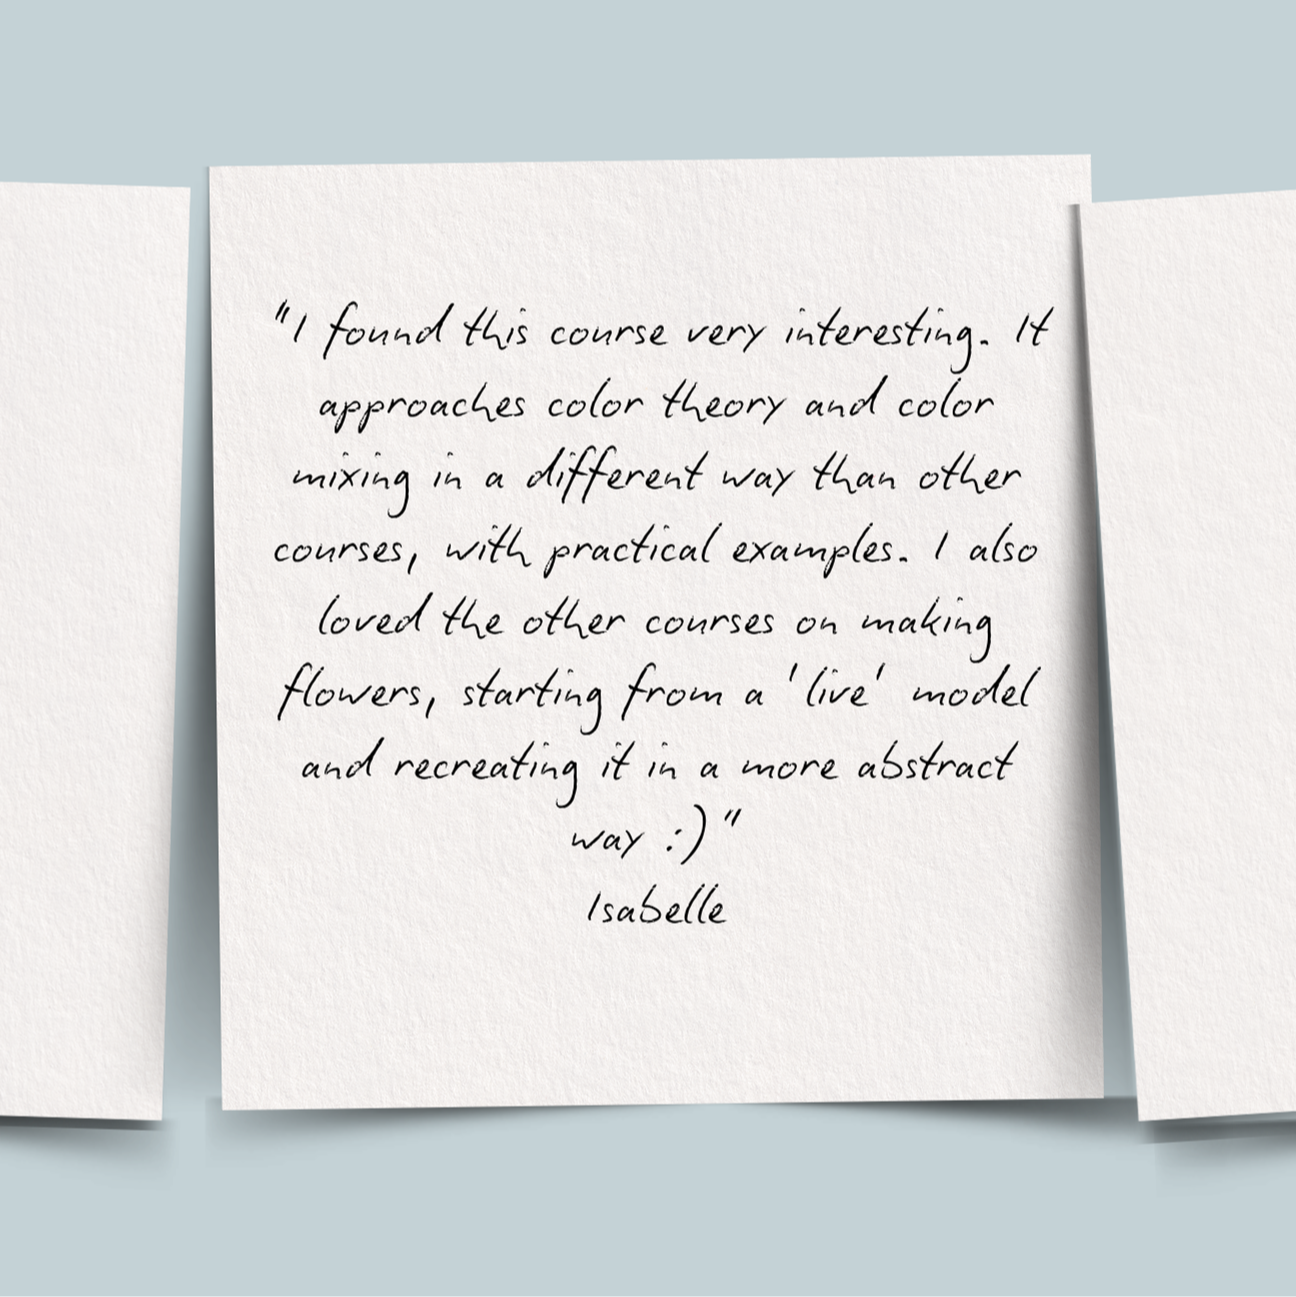 "I found this course very interesting. It
approaches color theory and color
mixing in a different way than other
courses, with practical examples. I also
loved the other courses on making
flowers, starting from a 'live' model
and recreating it in a more abstract
way :)"
Isabelle